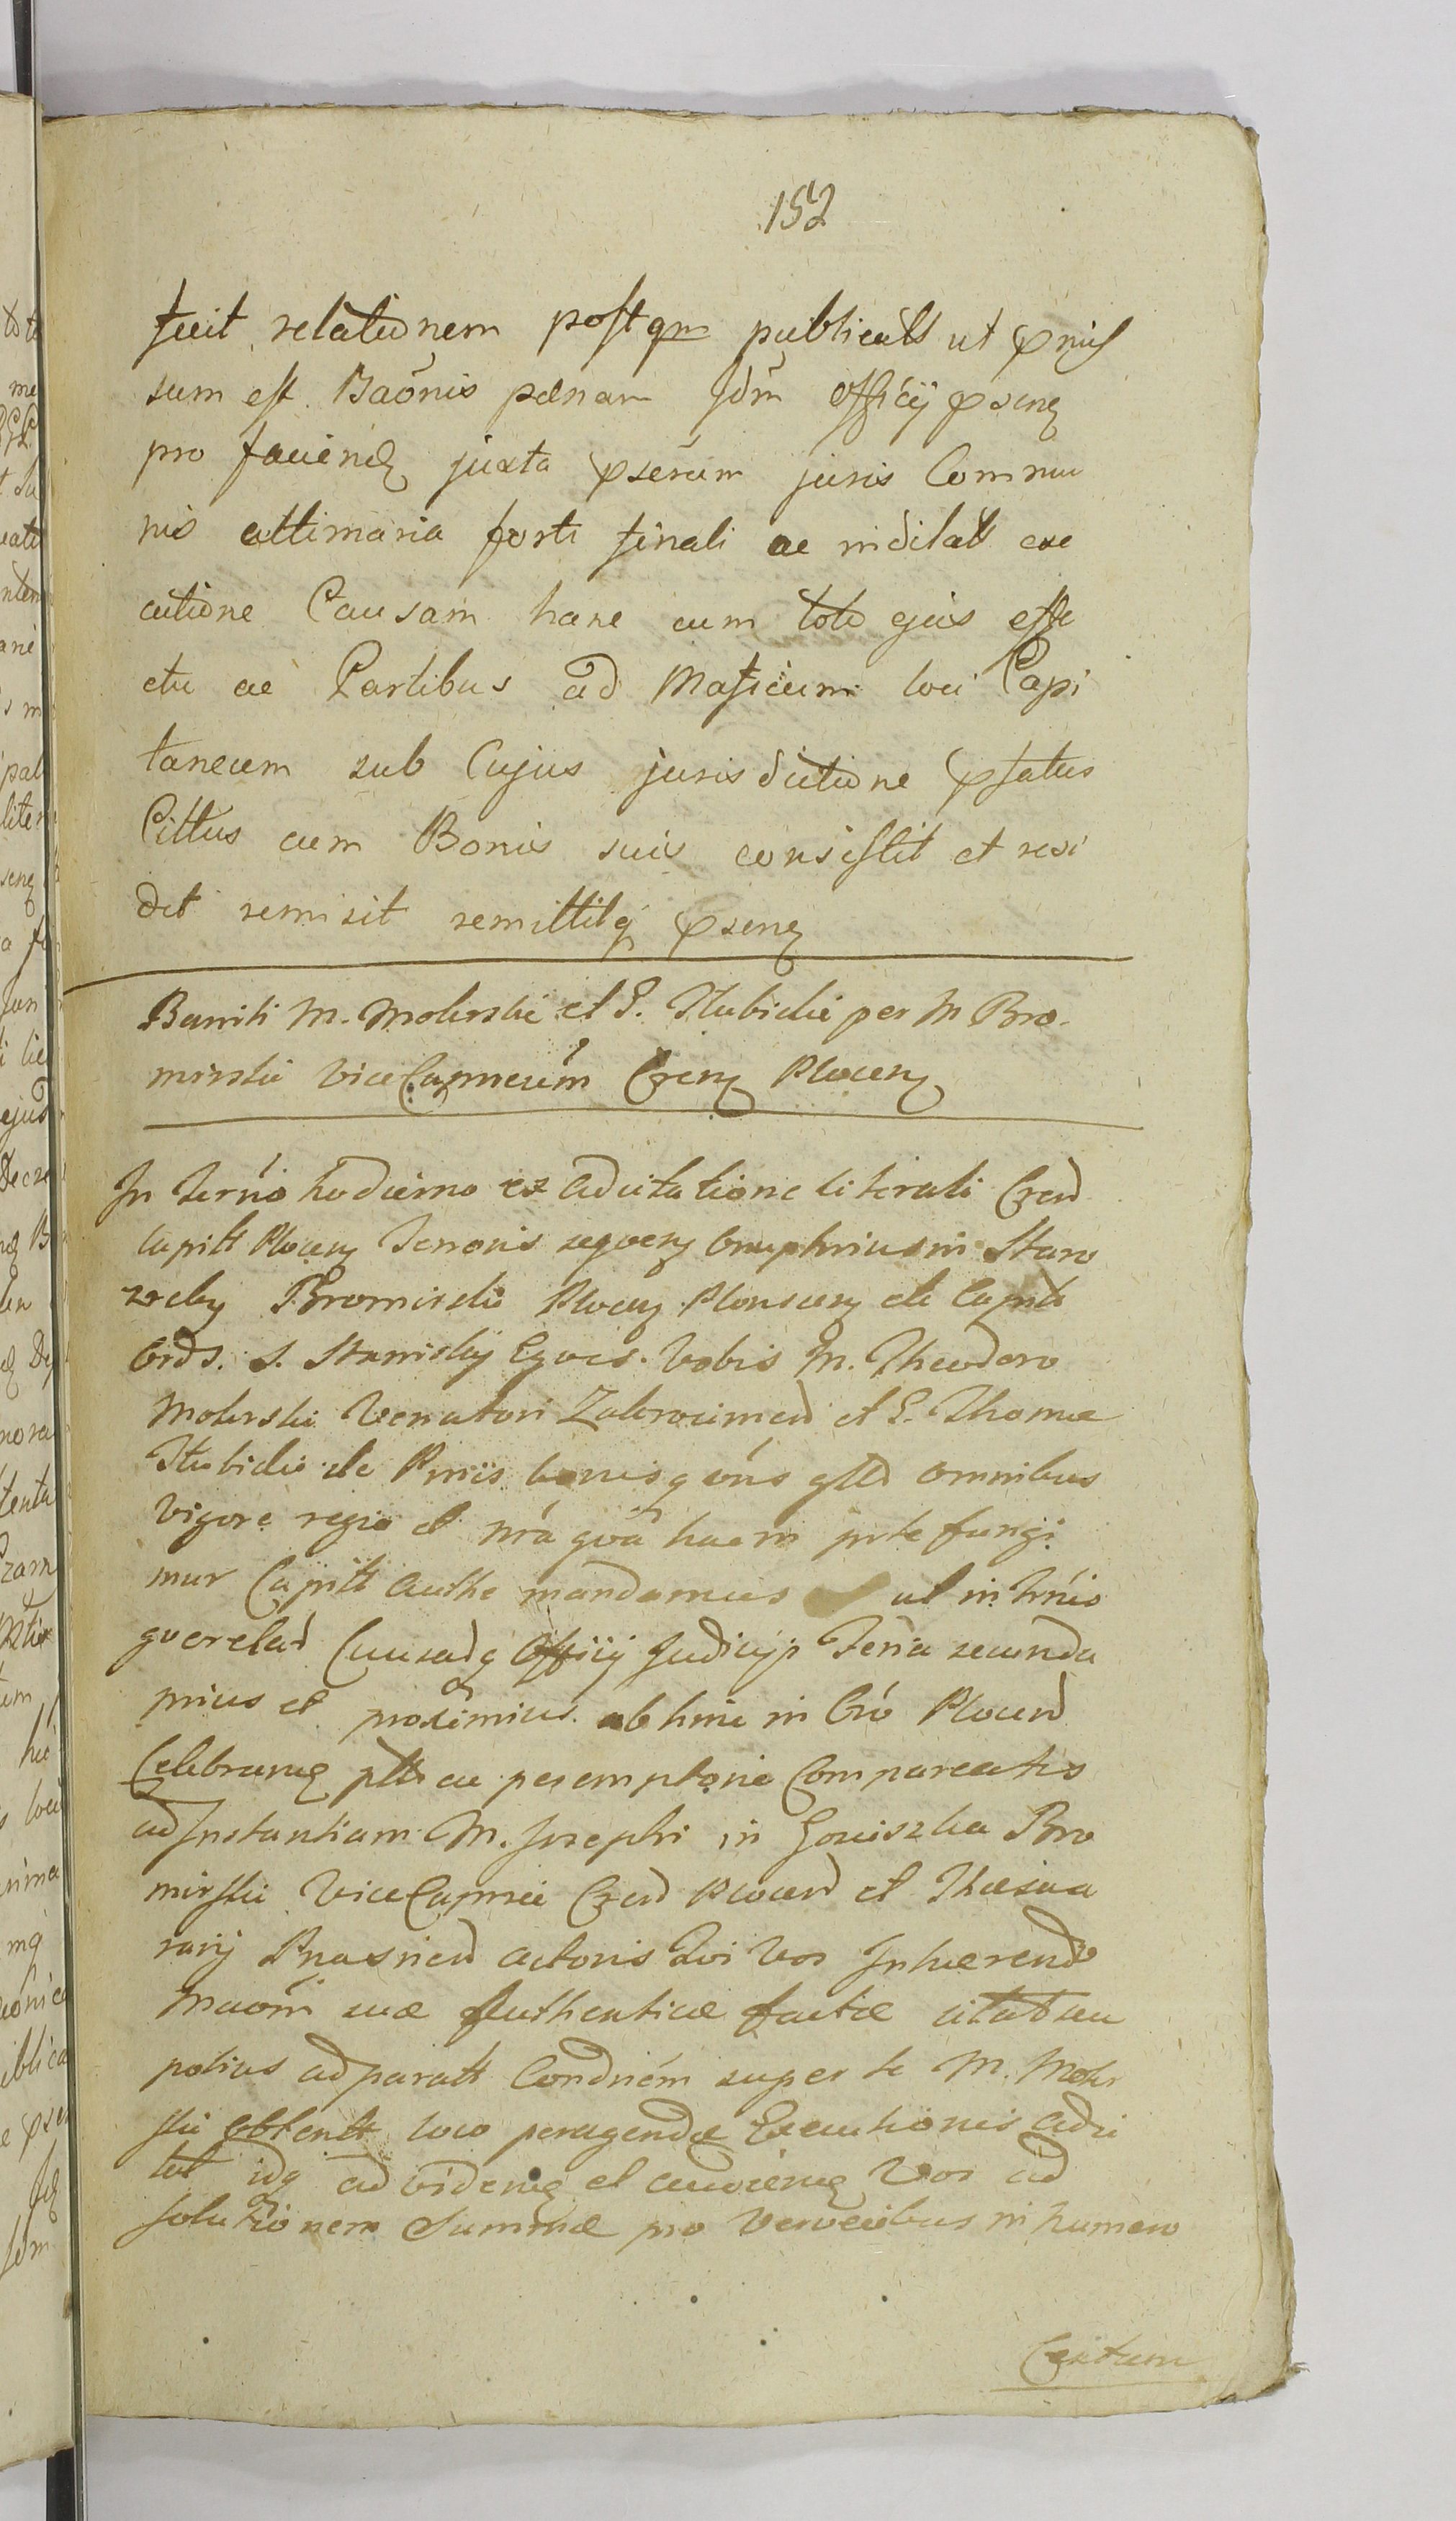 152
fecit relationem postqm publicatt ut pmis
sum est. Baõnis pœnam Jdm officij psenz
pro faciendz juxta pserãm juris Commu
nis ultimaria forti finali ac indilatt exe
cutione Causam hanc cum toto ejus effe
ctu ac Partibus ad Mãficum loci Capi
taneum sub Cujus jurisdictione pfatus
Cittus cum Bonis suis consistit et resi
det remisit remittitq psenz
Banniti M. Mokrski et G. per M Bro-
mirski ViceCapneum Crenz Plocenz
In Termo hodierno ex adcitatione literali
Capitt Plocenz Tenoris seqvenz Onuphrius in Staro
zreby Bromirski Plocenz Plonscenz etc Capitt
Ords. S. Stanislaj Eqves. Vobis M. Theodoro
Mokrski Venatori Zakrocimen et G. Thomæ
de Pniis bonisq võris gltt omnibus
vigore regia et nrã qvã hac in prte fungi
mur Capitt Authe mandamus ut in Trnis
qverelar Causarq Officij Judicijq Feria secunda
prius et proximius ab hinc in Crõ Plocen
Celebranz pltt ac peremptorie Compareatis
ad Instantiam M. Josephi in Goniszka Bro
mirski ViceCapnei Plocen et Thesau
rarij actoris Qvi Vos Inhærendo
suæ Authenticæ factæ citat seu
potius ad paratt Condnem super te M. Mokr
ski obtentt loco peragendæ Executionis adci
tat idq ad videnz et audienz Vos ad
Solutionem Summæ pro Vervecibus in humero
Centum